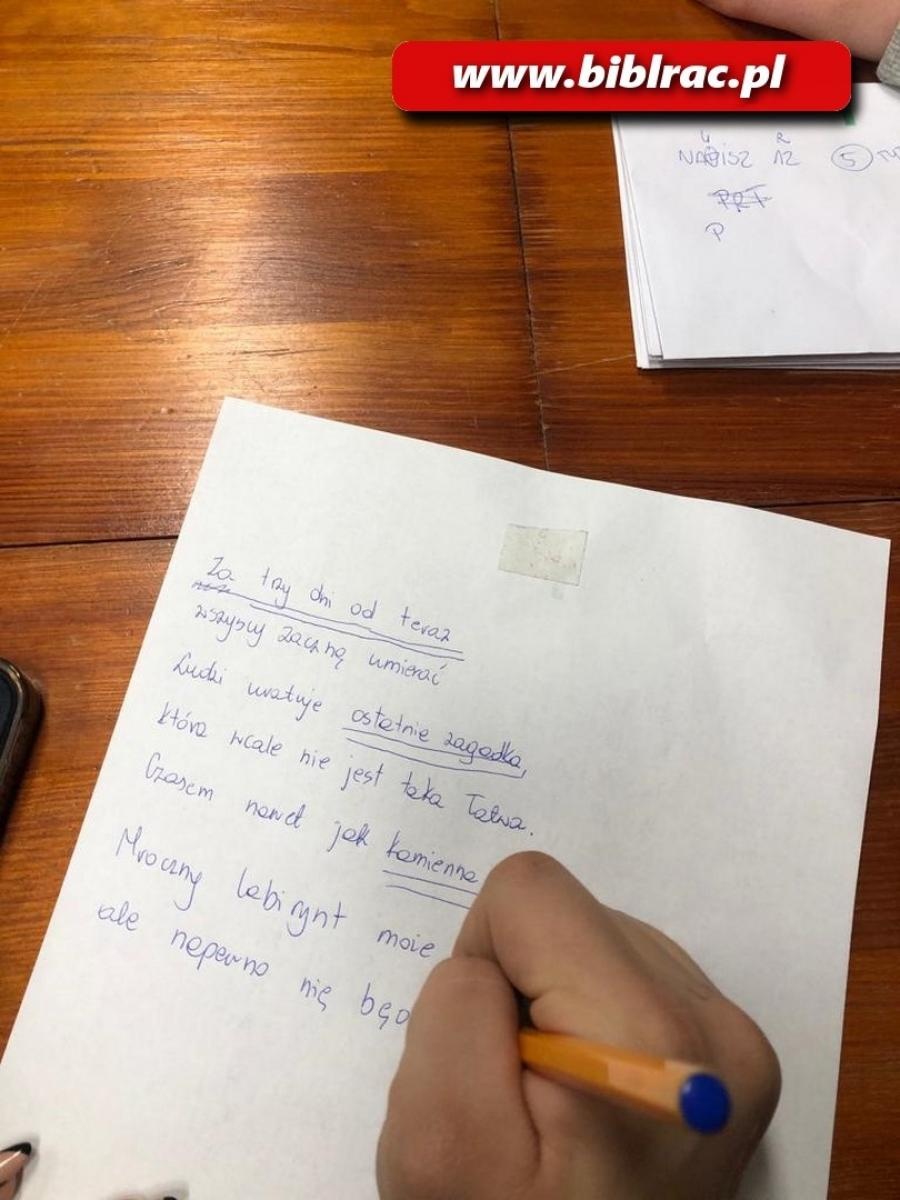 www.biblrac.pl
NAPISZ 12 5
P
Za trzy dni od teraz
wszyscy zaczną umierać
Ludzi uratuje ostatnie zagadka,
która wcale nie jest taka łatwa.
Czasem nawet jak kamienna
Mroczny labirynt moie
ale naperno nię będ